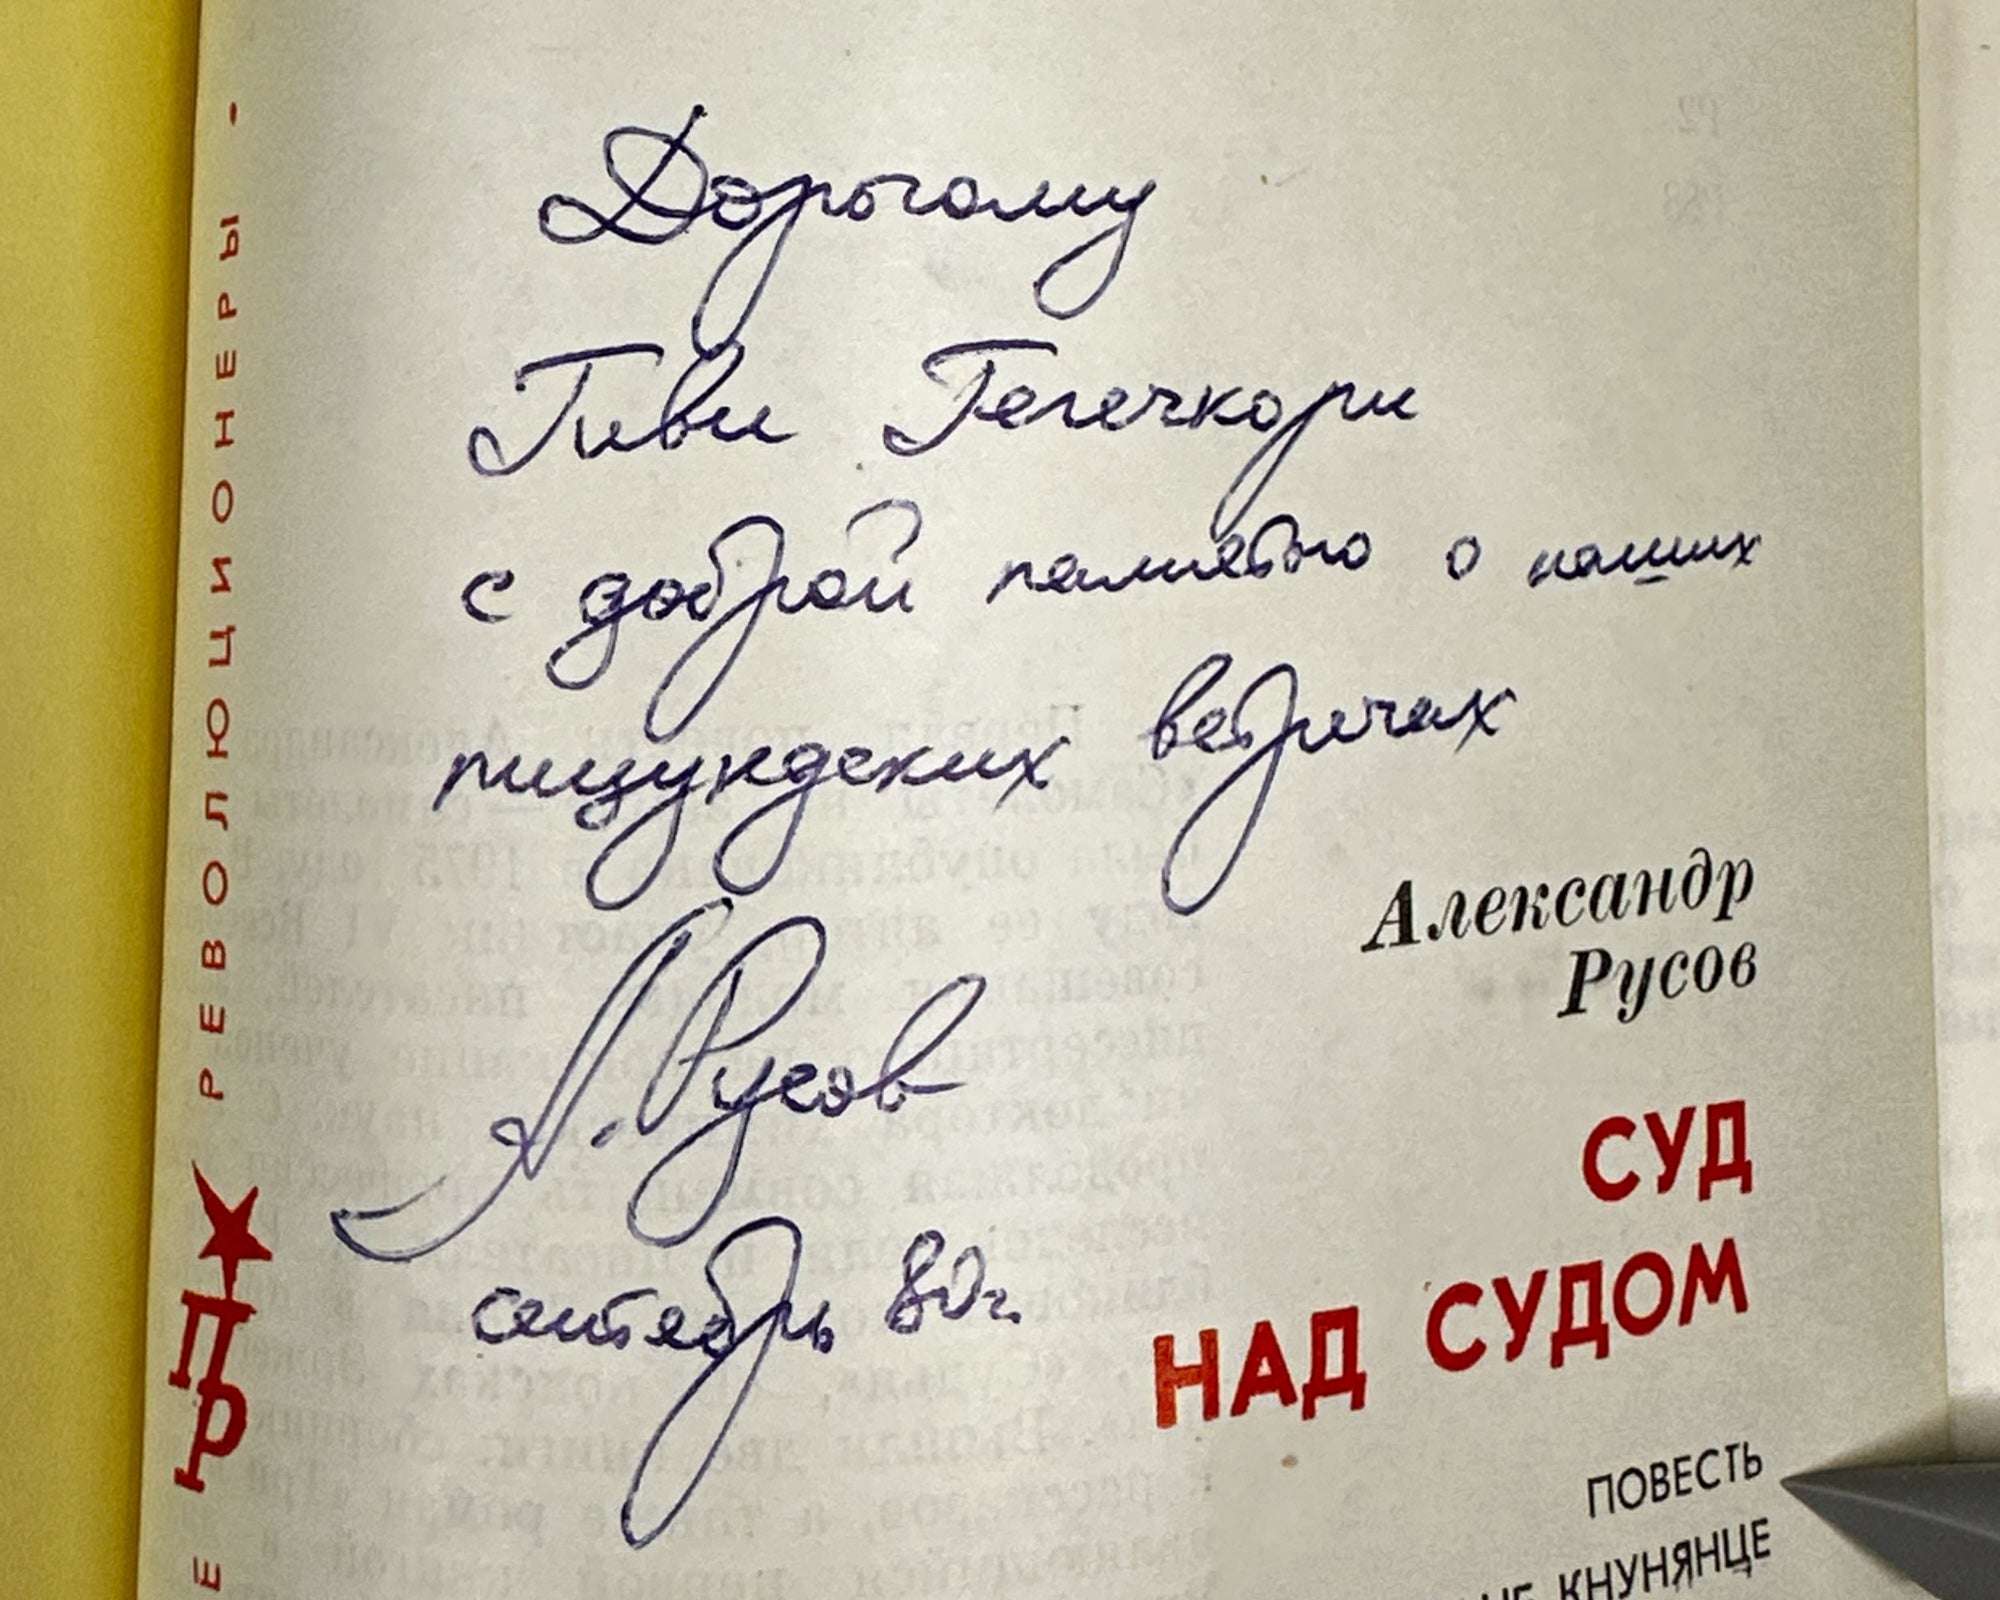 Дорогому
Гиви Гегечкори
с доброй памятью о наших
пицундских встречах
А. Русов
сентябрь 80г.
Александр
Русов
СУД
НАД СУДОМ
ПОВЕСТЬ
КНУНЯНЦЕ
Е РЕВОЛЮЦИОНЕРЫ •
ПР